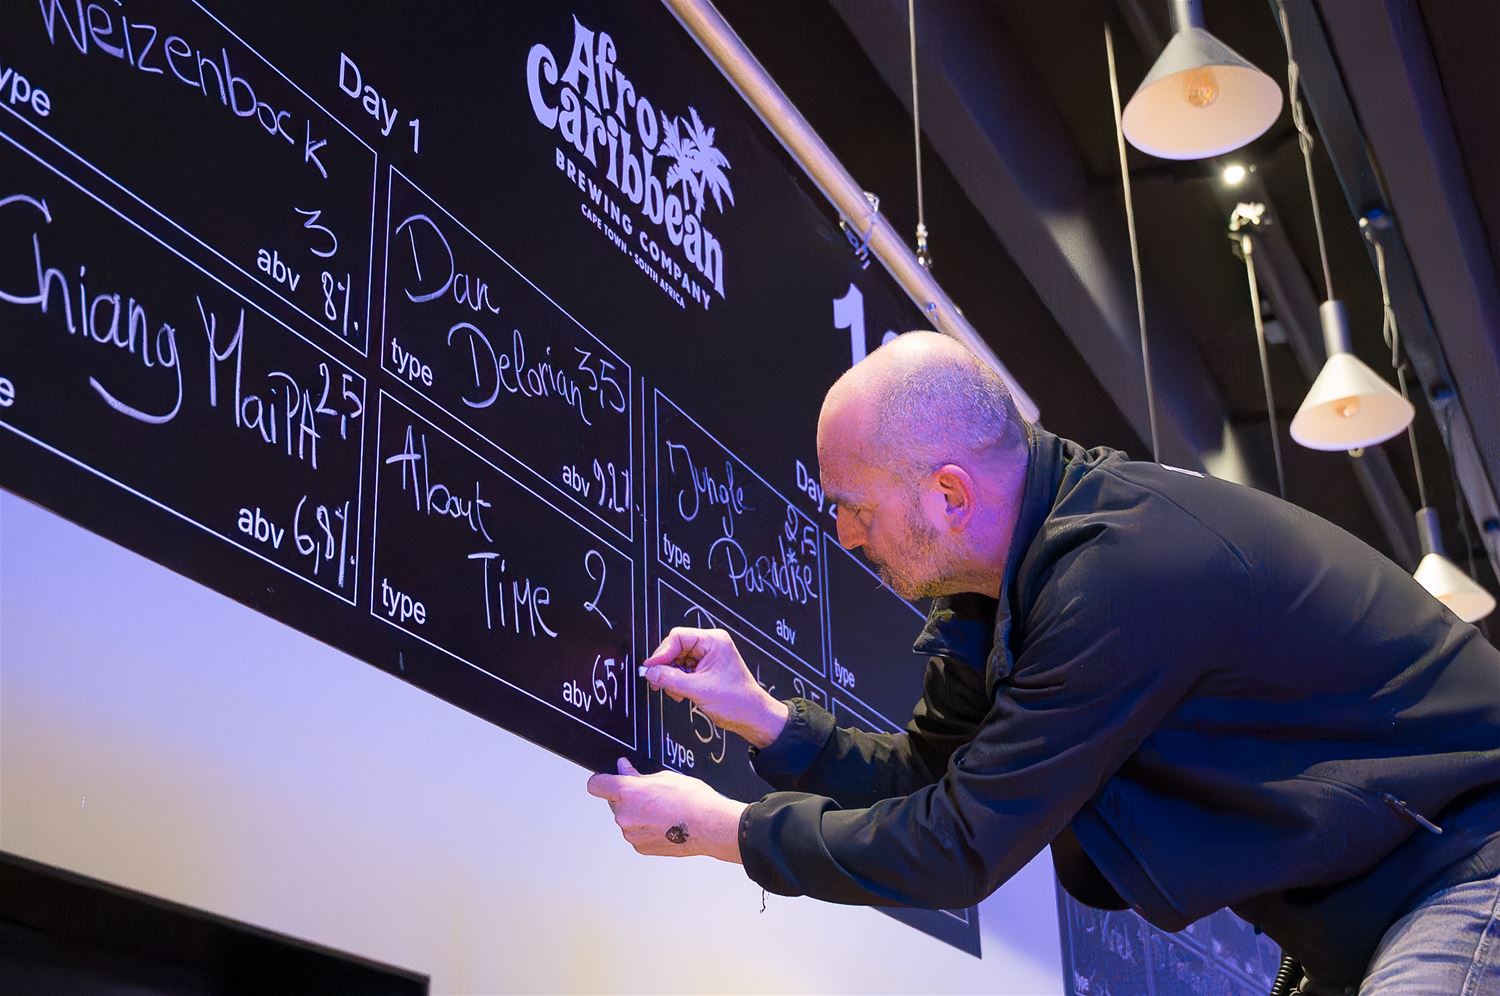 Weizenbock
3
abv 8%
Chiang MaiPA
2,5
abv 6,8%
Day 1
Dan
Delorian 3,5
type
abv 9,2%
About
Time 2
type
abv 6,5%
Afro
Caribbean
BREWING COMPANY
CAPE TOWN • SOUTH AFRICA
Day 2
Jungle
Paradise
2,5
type
abv
type
By
2,5
type